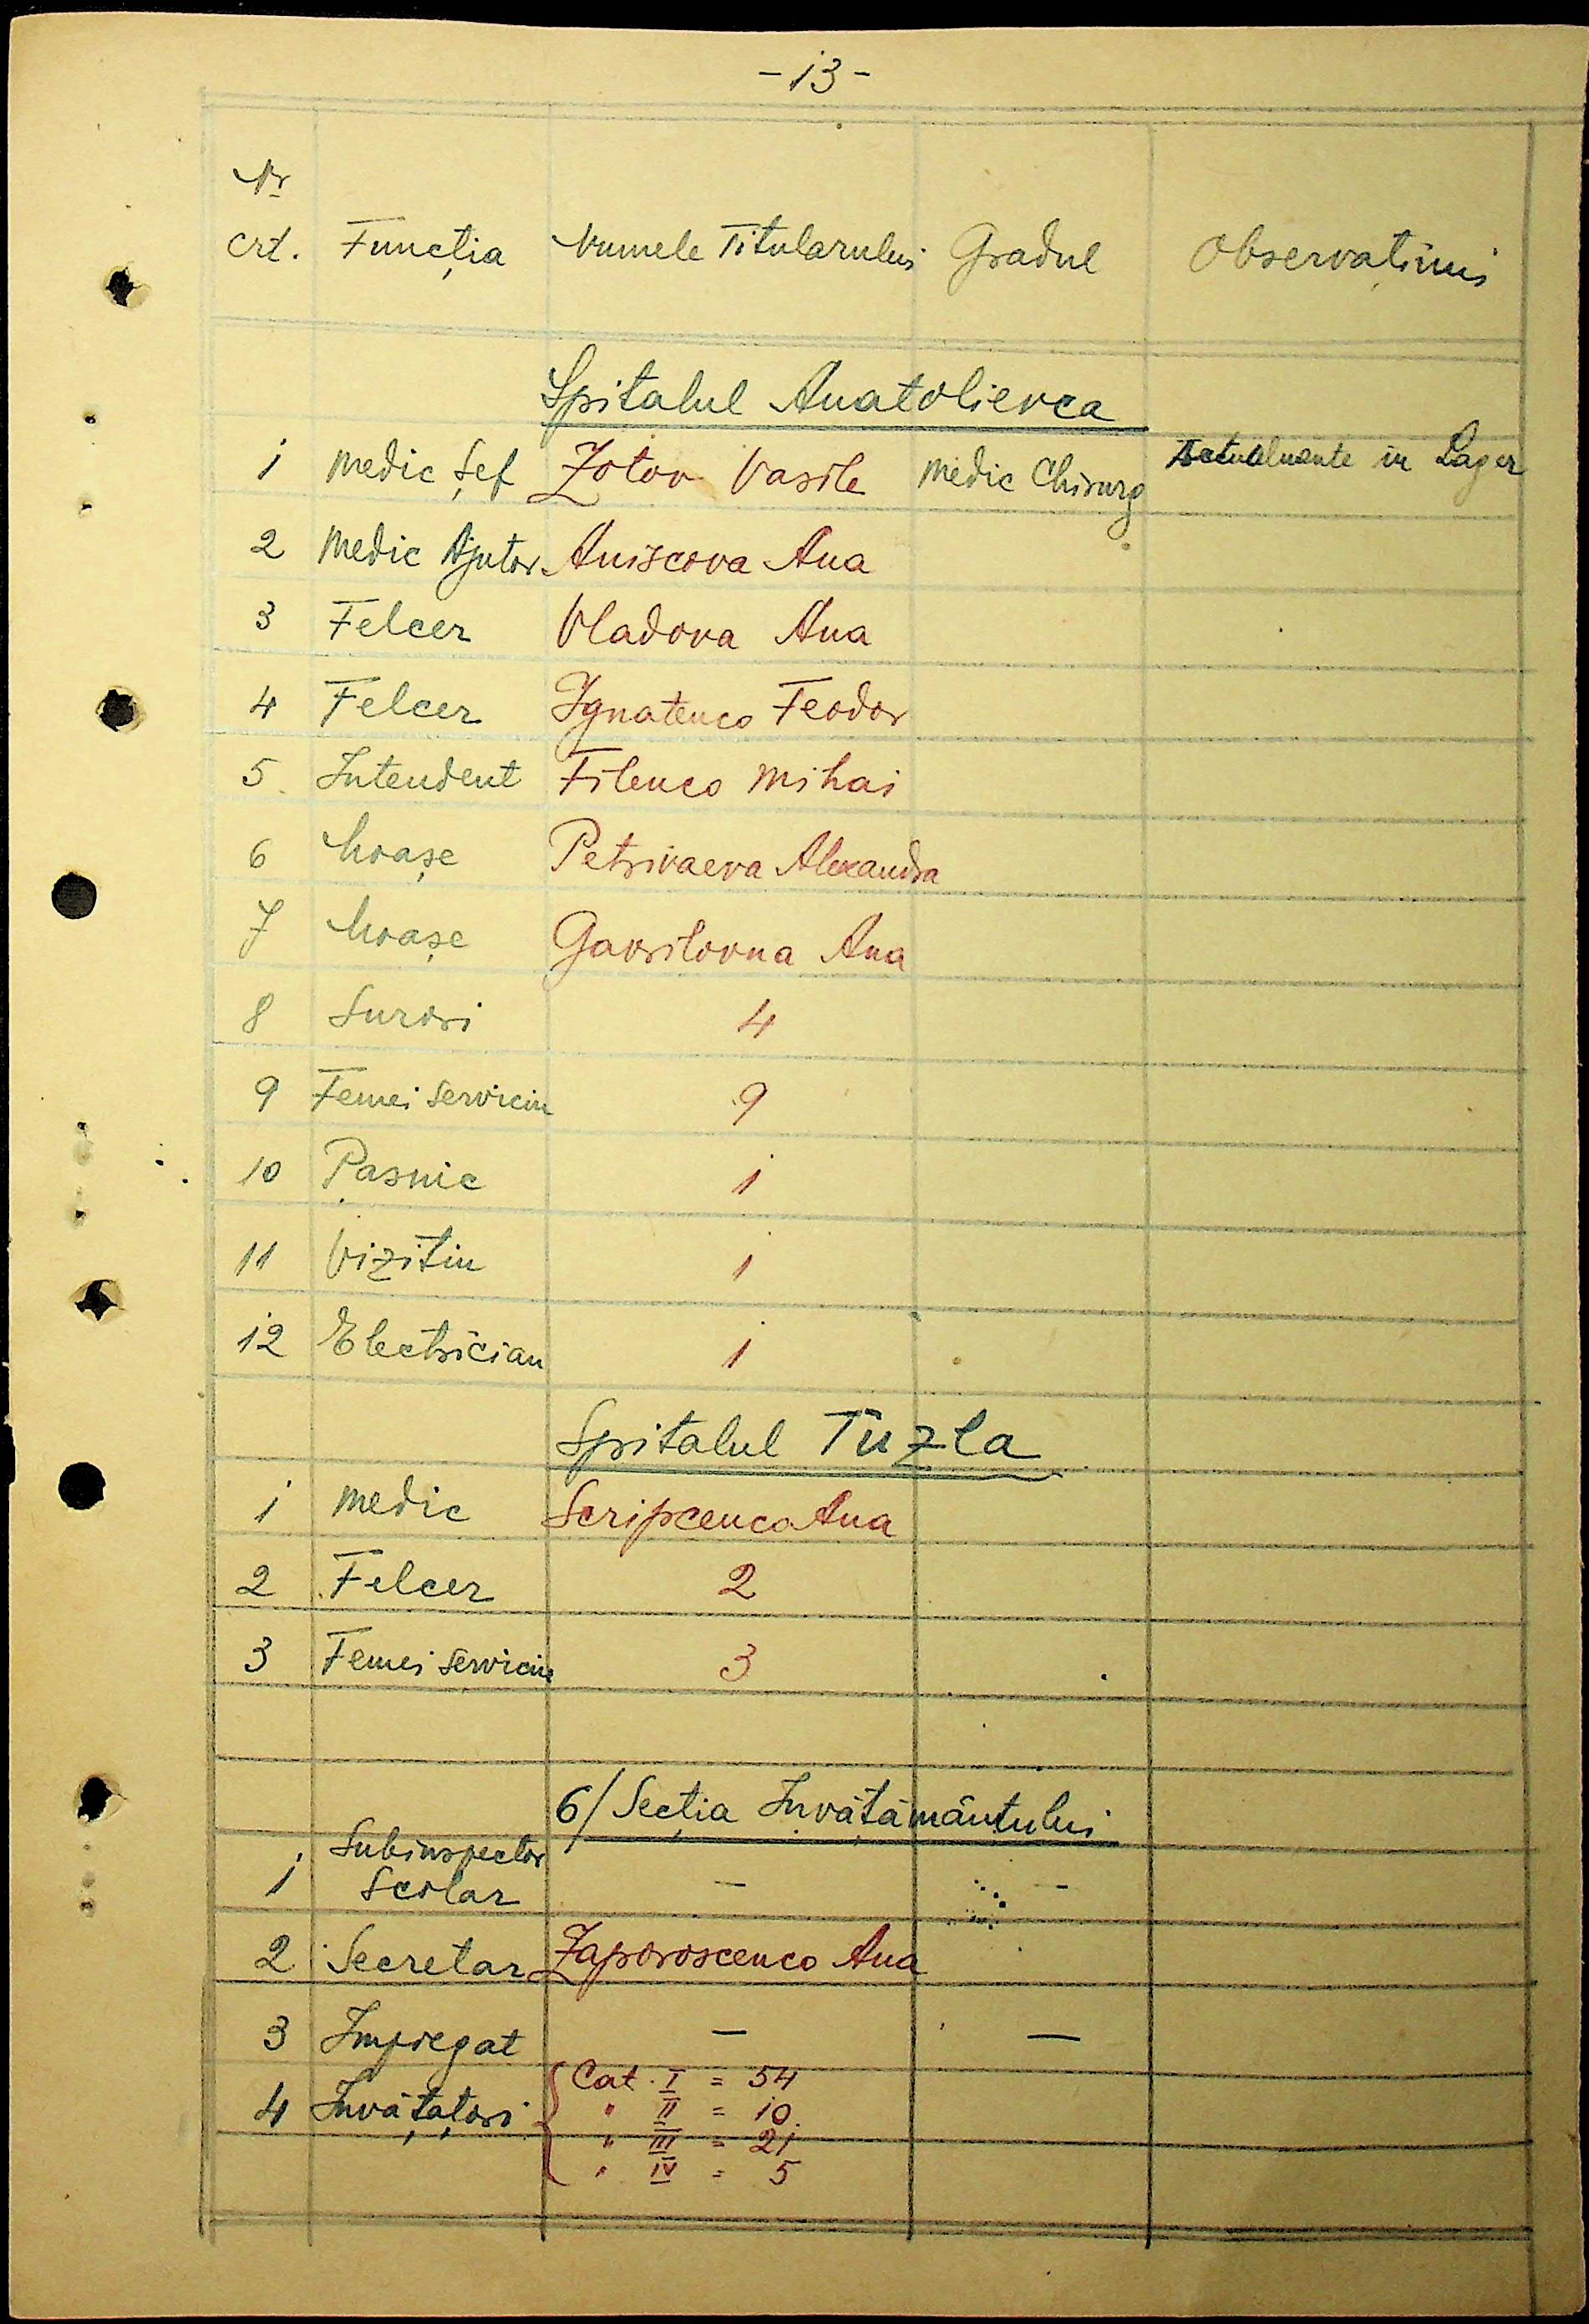 - 13 -
Nr
crt. Funcția Numele Titularului Gradul Observațiuni
Spitalul Anatolievca
1 Medic Șef Zotov Vasile Medic Chirurg Actualmente in Lager
2 Medic Ajutor Aniscova Ana
3 Felcer Vladova Ana
4 Felcer Ignatenco Feodor
5 Intendent Filenco Mihai
6 Moașe Petrivaeva Alexandra
7 Moașe Gavrilovna Ana
8 Surori 4
9 Femei Serviciu 9
10 Pasnic 1
11 Vizitiu 1
12 Electrician 1
Spitalul Tuzla
1 Medic Scripcenco Ana
2 Felcer 2
3 Femei Serviciu 3
6/ Secția Învățământului
1 Subinspector
Scolar - -
2 Secretar Zaporoscenco Ana
3 Impiegat - -
4 Învățațori { Cat. I = 54
" II = 10
" III = 21
" IV = 5